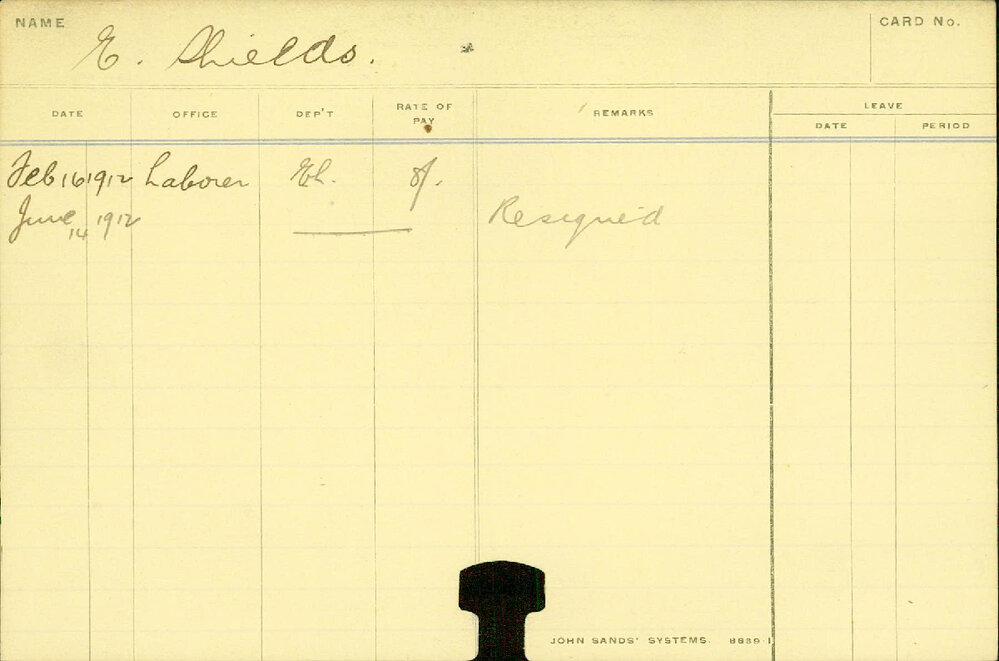 NAME E. Shields. CARD No.
DATE OFFICE DEP'T RATE OF PAY REMARKS LEAVE
DATE PERIOD
Feb 16 1912 Laborer El.
June 14 1912 Resigned
JOHN SANDS' SYSTEMS. 8839·1